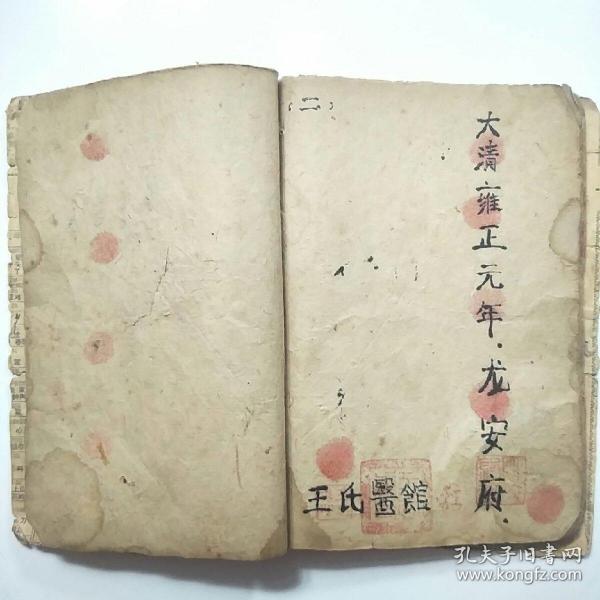 大清雍正元年.龙安府.
(二)
王氏醫館
孔夫子旧书网
www.kongfz.com